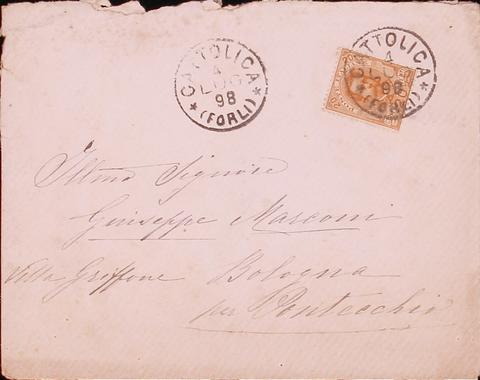 CATTOLICA
4
LUG
98
* (FORLI) *
CATTOLICA
4
LUG
98
* (FORLI) *
Illmo Signore
Giuseppe Marconi
Villa Griffone Bologna
per Pontecchio